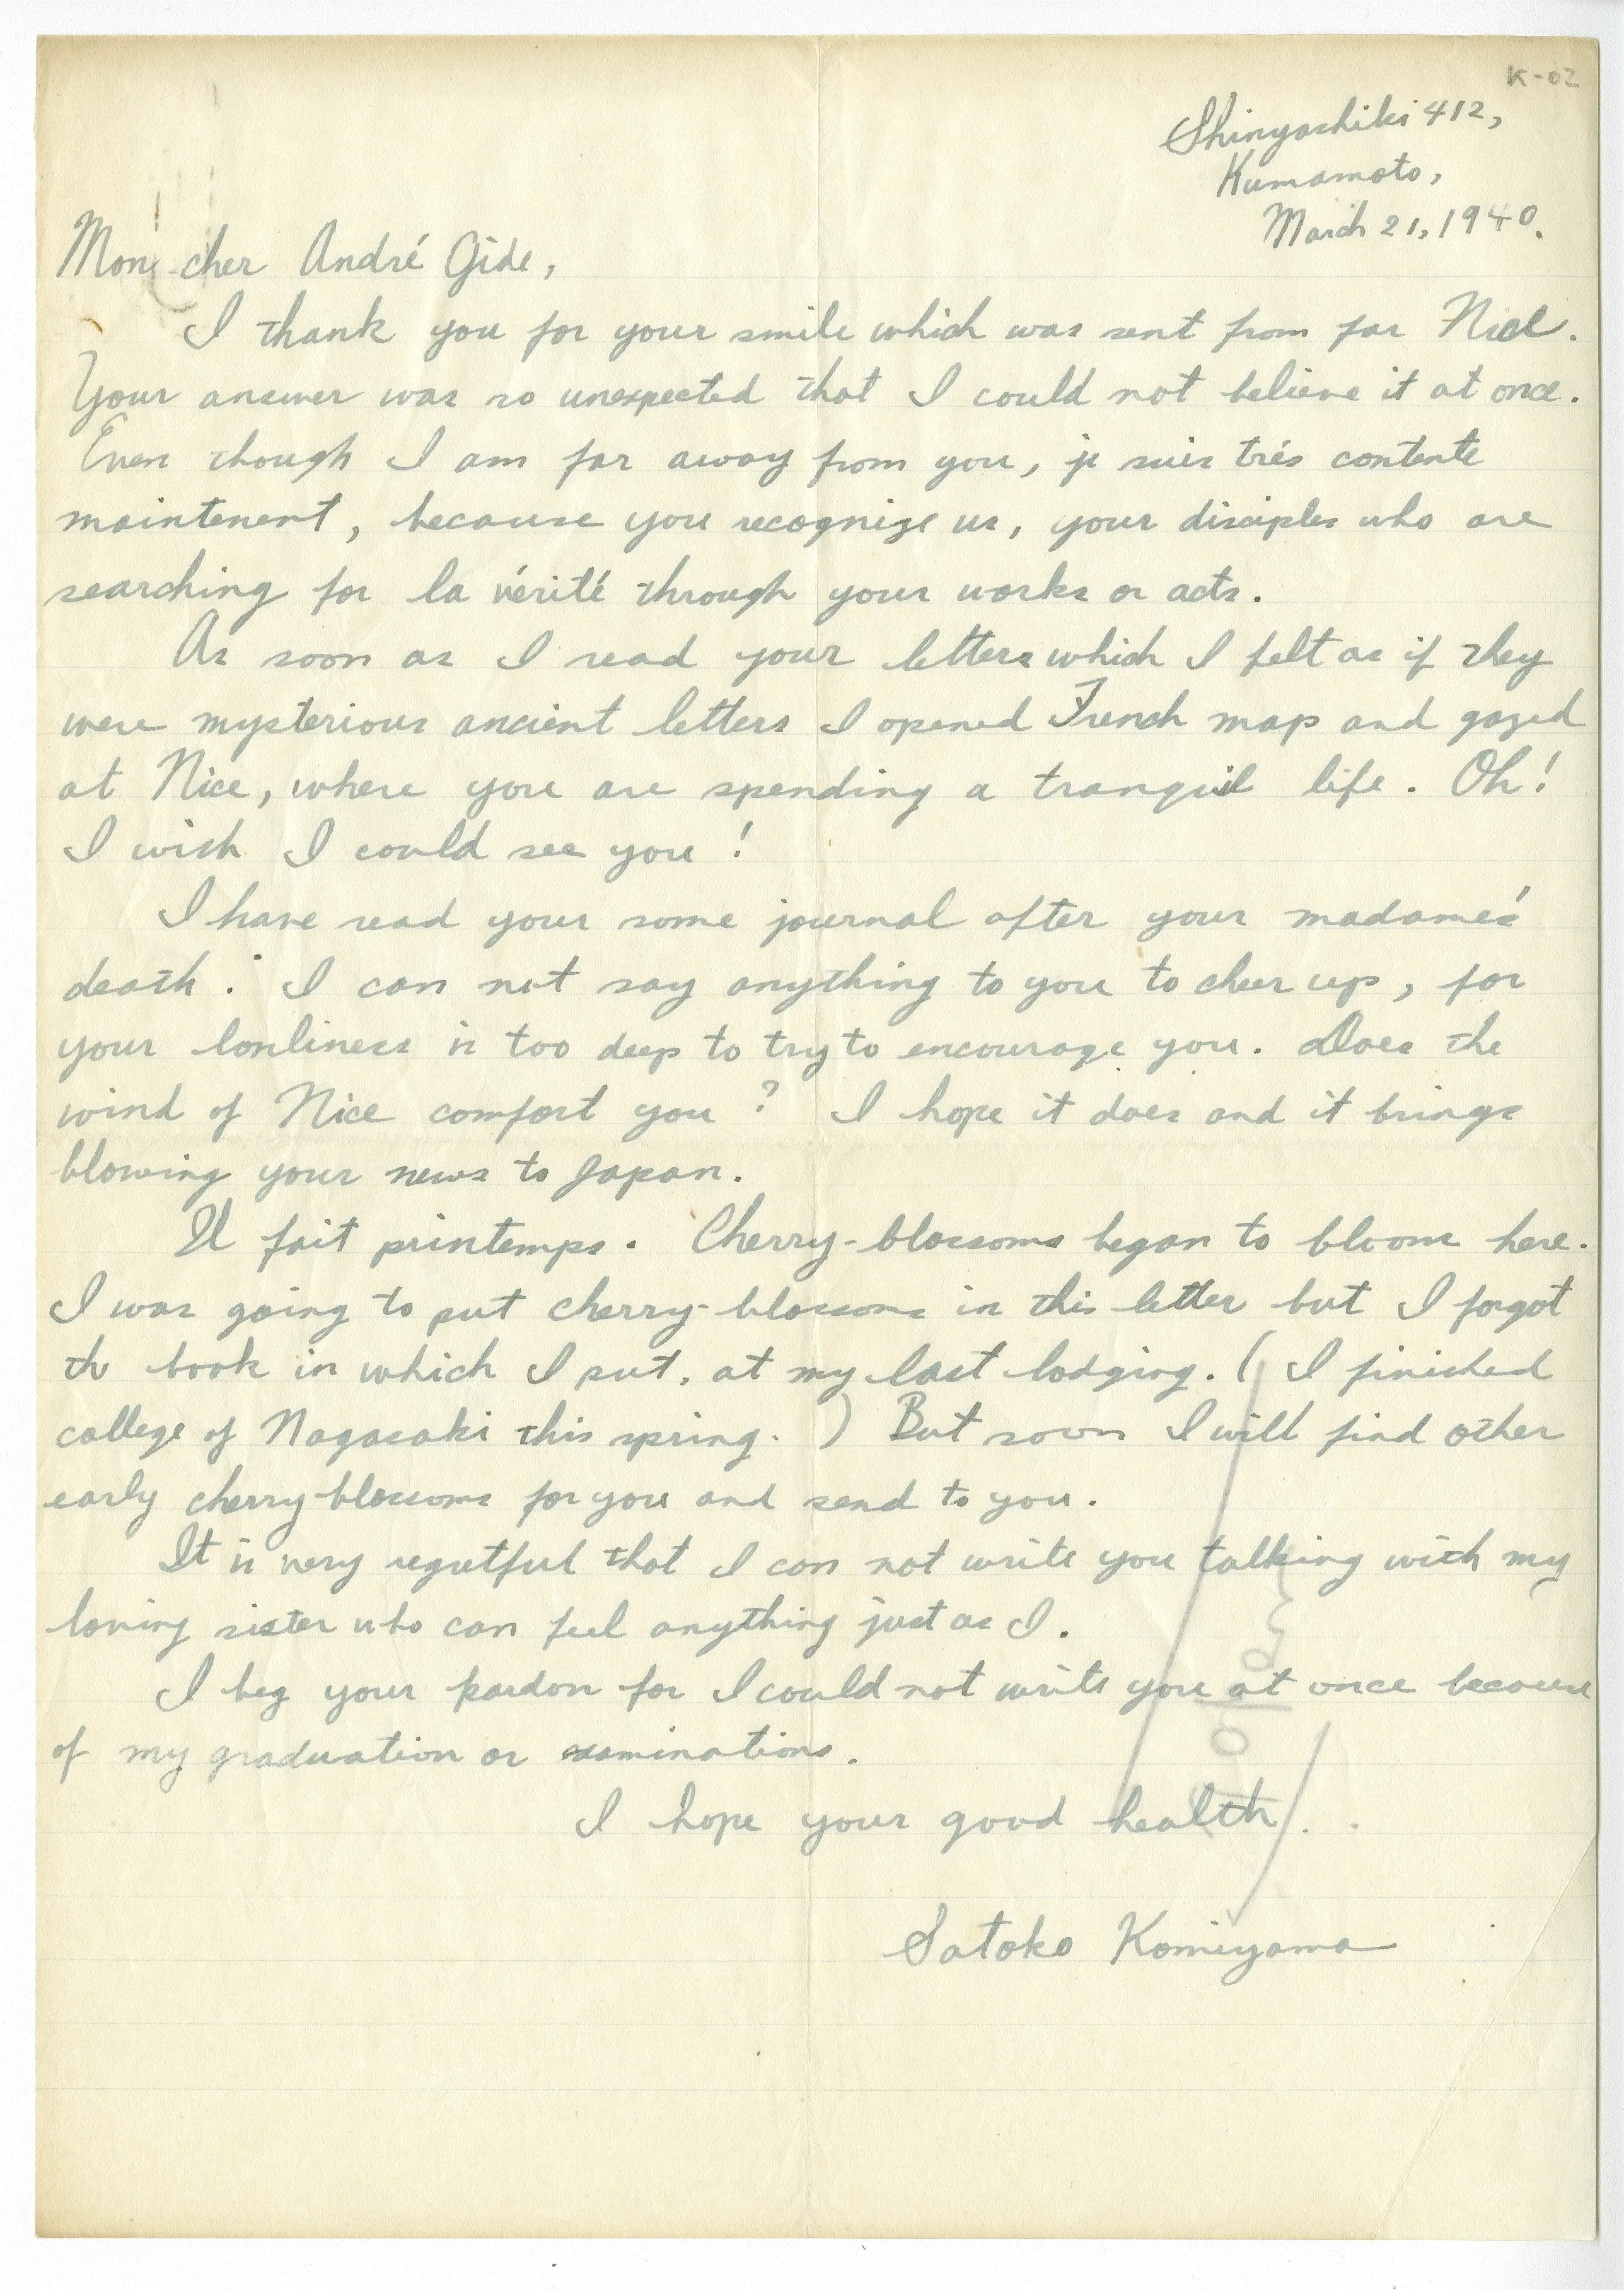 K-02
Shinyashiki 412,
Kumamoto,
March 21, 1940.
Mon cher André Gide,
I thank you for your smile which was sent from far Nice.
Your answer was so unexpected that I could not believe it at once.
Even though I am far away from you, je suis trés contente
maintenent, because you recognize us, your disciples who are
searching for la vérité through your works or acts.
As soon as I read your letters which I felt as if they
were mysterious ancient letters I opened French map and gazed
at Nice, where you are spending a tranquil life. Oh!
I wish I could see you!
I have read your some journal after your madame's
death. I can not say anything to you to cheer up, for
your lonliness is too deep to try to encourage you. Does the
wind of Nice comfort you? I hope it does and it brings
blowing your news to Japan.
Il fait printemps. Cherry-blossoms began to bloom here.
I was going to put cherry-blossoms in this letter but I forgot
the book in which I put, at my last lodging. (I finished
college of Nagasaki this spring.) But soon I will find other
early cherry-blossoms for you and send to you.
It is very regretful that I can not write you talking with my
loving sister who can feel anything just as I.
I beg your pardon for I could not write you at once because
of my graduation or examinations.
I hope your good health.
Satoko Komiyama